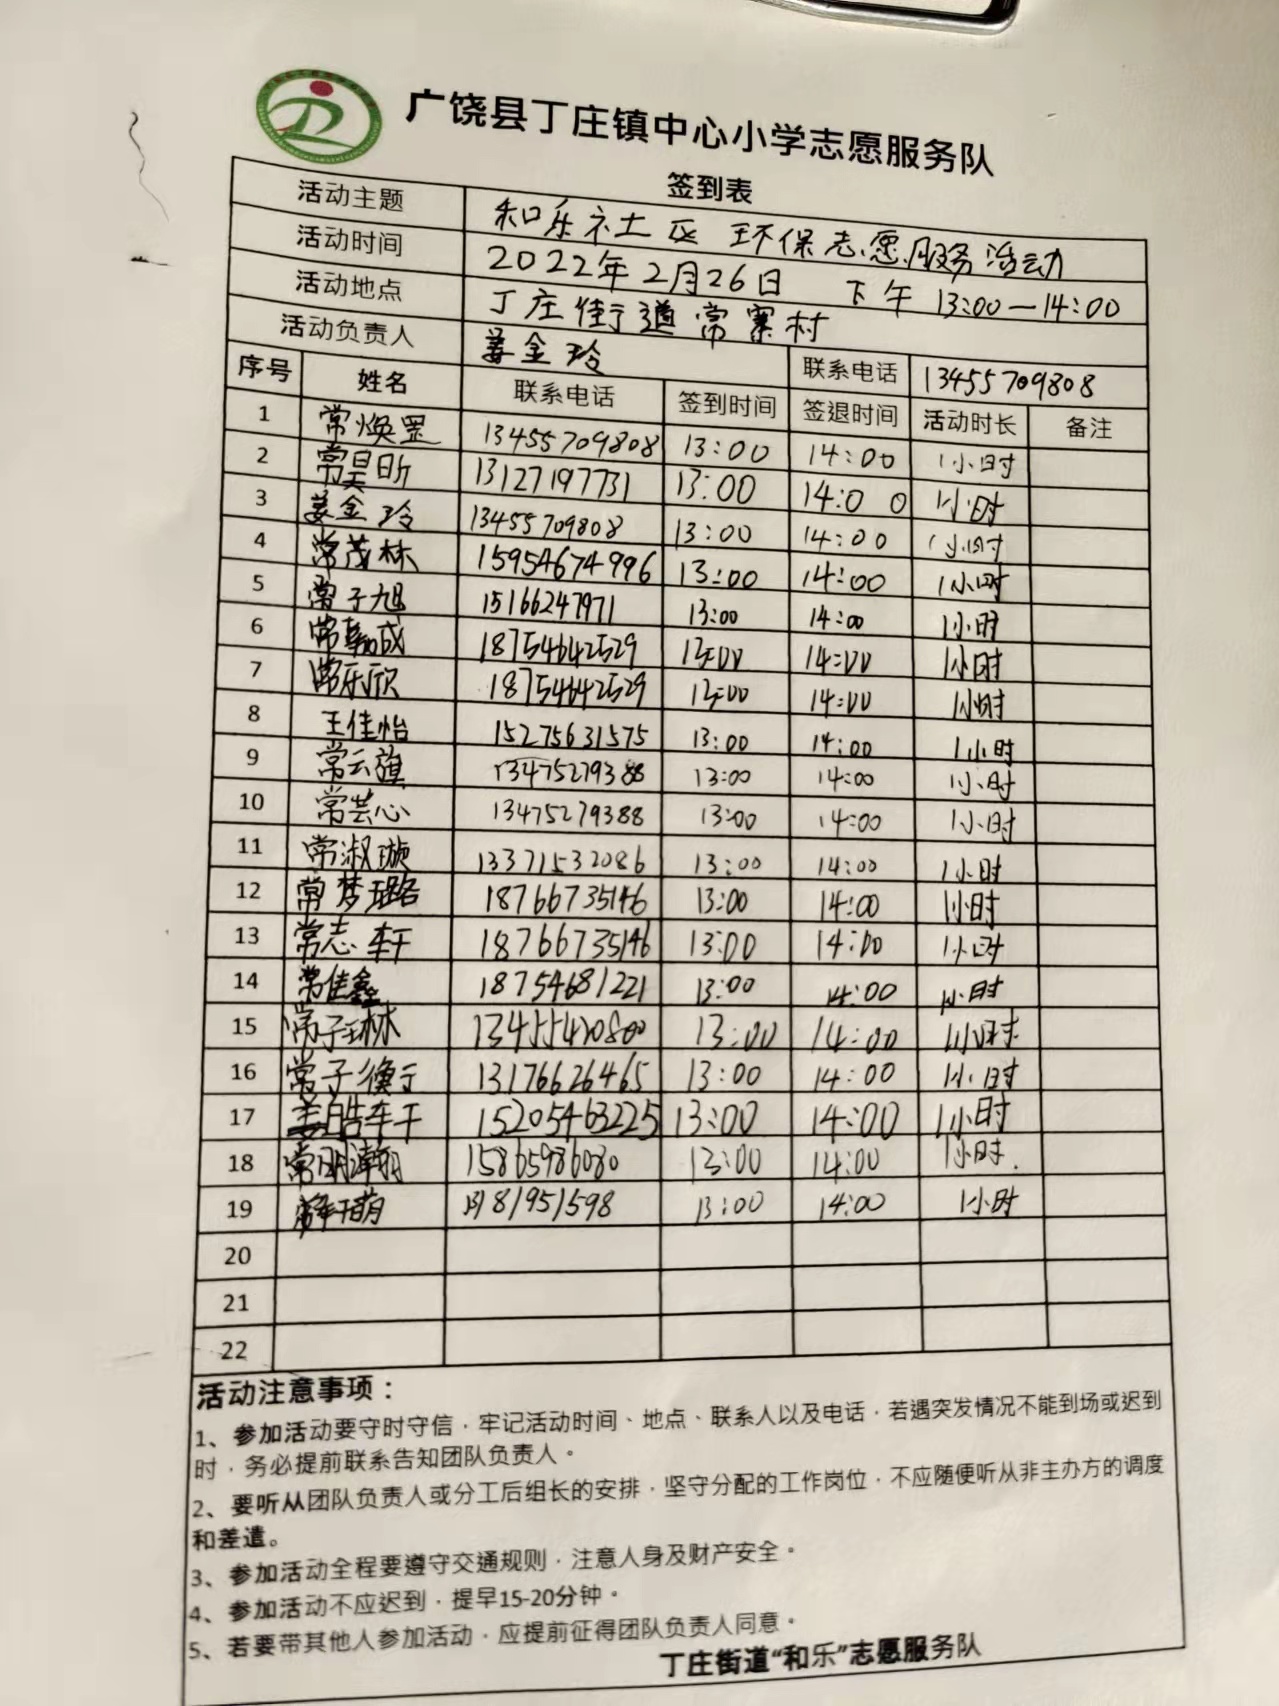 广饶县丁庄镇中心小学志愿服务队
签到表
活动主题 和乐社区环保志愿服务活动
活动时间 2022年2月26日 下午 13:00—14:00
活动地点 丁庄街道常寨村
活动负责人 姜金玲 联系电话 13455709808
序号 姓名 联系电话 签到时间 签退时间 活动时长 备注
1 常焕罡 13455709808 13:00 14:00 1小时
2 常昊昕 13127197731 13:00 14:00 1小时
3 姜金玲 13455709808 13:00 14:00 1小时
4 常茂林 15954674996 13:00 14:00 1小时
5 常子旭 15166247971 13:00 14:00 1小时
6 18754642529 13:00 14:00 1小时
7 常乐欣 18754642529 13:00 14:00 1小时
8 王佳怡 15275631575 13:00 14:00 1小时
9 常云旗 13475279388 13:00 14:00 1小时
10 常芸心 13475279388 13:00 14:00 1小时
11 常淑璇 13371532086 13:00 14:00 1小时
12 常梦璐 18766735146 13:00 14:00 1小时
13 常志轩 18766735146 13:00 14:00 1小时
14 常佳鑫 18754681221 13:00 14:00 1小时
15 常子琳 13:00 14:00 1小时
16 常子衡 13176626465 13:00 14:00 1小时
17 姜皓轩 15205463225 13:00 14:00 1小时
18 常明翰 15865986080 13:00 14:00 1小时
19 13:00 14:00 1小时
20
21
22
活动注意事项：
1、参加活动要守时守信，牢记活动时间、地点、联系人以及电话，若遇突发情况不能到场或迟到
时，务必提前联系告知团队负责人。
2、要听从团队负责人或分工后组长的安排，坚守分配的工作岗位，不应随便听从非主办方的调度
和差遣。
3、参加活动全程要遵守交通规则，注意人身及财产安全。
4、参加活动不应迟到，提早15-20分钟。
5、若要带其他人参加活动，应提前征得团队负责人同意。
丁庄街道“和乐”志愿服务队